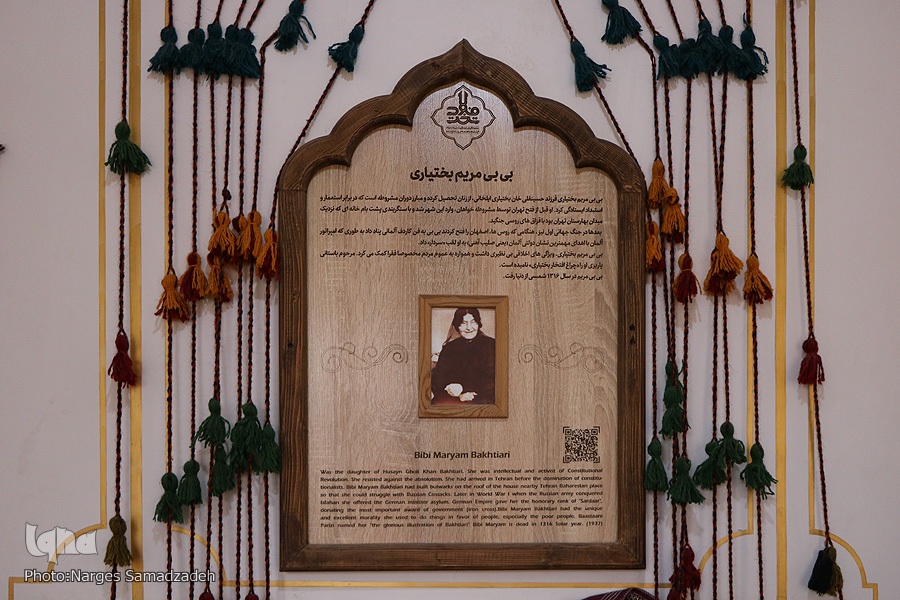 بی بی مریم بختیاری
بی بی مریم بختیاری فرزند حسینقلی خان بختیاری ایلخانی، از زنان تحصیل کرده و مبارز دوران مشروطه است که در برابر استعمار و
استبداد ایستادگی کرد. او قبل از فتح تهران توسط مشروطه خواهان، وارد این شهر شد و با سنگربندی پشت بام خانه ای که نزدیک
میدان بهارستان تهران بود با قزاق های روسی جنگید.
بعدها در جنگ جهانی اول نیز، هنگامی که روس ها، اصفهان را فتح کردند بی بی به فن کاردف آلمانی پناه داد به طوری که امپراتور
آلمان با اهدای مهمترین نشان دولتی آلمان (یعنی صلیب آهنی) به او لقب «سردار» داد.
بی بی مریم بختیاری، ویژگی های اخلاقی بی نظیری داشت و همواره به عموم مردم مخصوصا فقرا کمک می کرد. مرحوم باستانی
پاریزی او را «چراغ افتخار بختیاری» نامیده است.
بی بی مریم در سال ۱۳۱۶ شمسی از دنیا رفت.
Bibi Maryam Bakhtiari
Was the daughter of Husayn Gholi Khan Bakhtiari. She was intellectual and activist of Constitutional
Revolution. She resisted against the absolutism. She had arrived in Tehran before the domination of constitu
tionalists. Bibi Maryam Bakhtiari had built bulwarks on the roof of the house nearby Tehran Baharestan place
so that she could struggle with Russian Cossacks. Later in World War I when the Russian army conquered
Isfahan she offered the German minister asylum. German Empire gave her the honorary rank of "Sardaar",
donating the most important award of government (iron cross).Bibi Maryam Bakhtiari had the unique
and excellent morality she used to do things in favor of people, especially the poor people. Baastaani
Parizi named her "the glorious illustration of Bakhtiari" Bibi Maryam is dead in 1316 Solar year. (1937)
iqna
Photo:Narges Samadzadeh